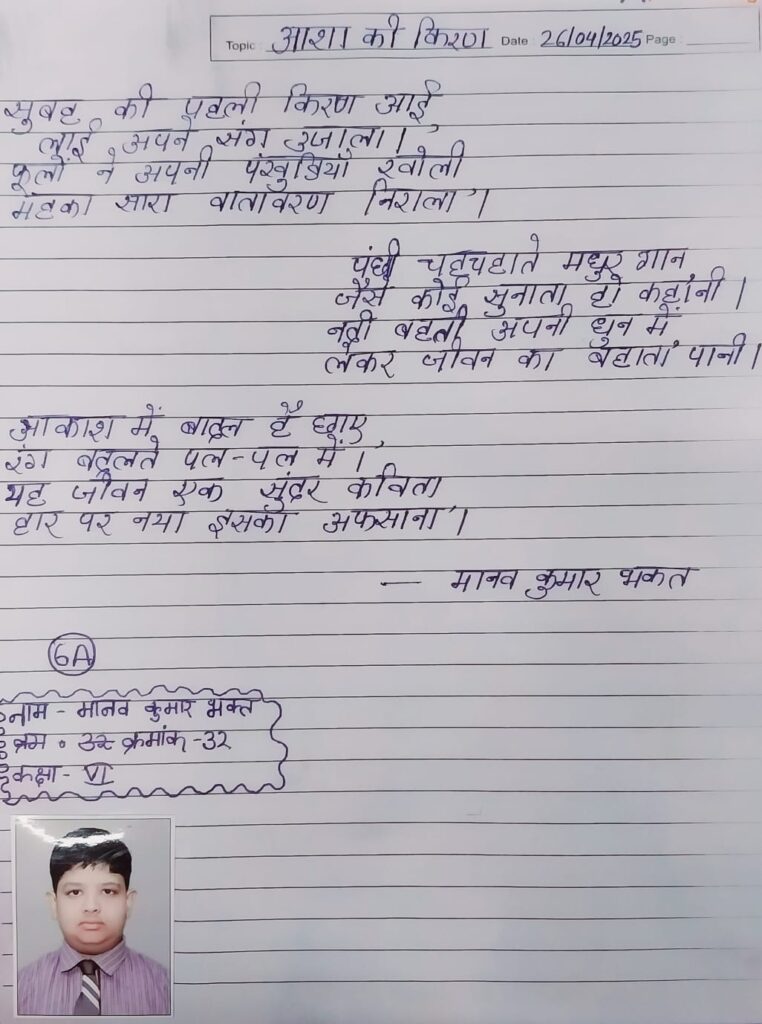 Topic : आशा की किरण Date : 26/04/2025 Page :
सुबह की पहली किरण आई,
लाई अपने संग उजाला।
फूलों ने अपनी पंखुडियाँ खोली
महका सारा वातावरण निराला।
पंछी चहचहाते मधुर गान,
जैसे कोई सुनाता हो कहानी।
नदी बहती अपनी धुन में
लेकर जीवन का बहाता पानी।
आकाश में बादल है छाए,
रंग बदलते पल-पल में।
यह जीवन एक सुंदर कविता
हार पर नया इसका अफसाना।
— मानव कुमार भकत
6A
नाम - मानव कुमार भकत
क्रमांक -32
कक्षा - VI